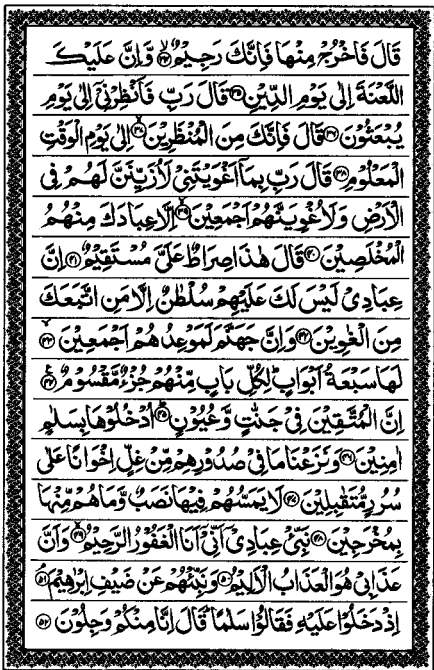 قَالَ فَاخْرُجْ مِنْهَا فَاِنَّكَ رَجِيْمٌ ﴿۳۴﴾ وَّاِنَّ عَلَيْكَ
اللَّعْنَةَ اِلٰى يَوْمِ الدِّيْنِ ﴿۳۵﴾ قَالَ رَبِّ فَاَنْظِرْنِيْٓ اِلٰى يَوْمِ
يُبْعَثُوْنَ ﴿۳۶﴾ قَالَ فَاِنَّكَ مِنَ الْمُنْظَرِيْنَ ﴿۳۷﴾ اِلٰى يَوْمِ الْوَقْتِ
الْمَعْلُوْمِ ﴿۳۸﴾ قَالَ رَبِّ بِمَآ اَغْوَيْتَنِيْ لَاُزَيِّنَنَّ لَهُمْ فِى
الْاَرْضِ وَلَاُغْوِيَنَّهُمْ اَجْمَعِيْنَ ﴿۳۹﴾ اِلَّا عِبَادَكَ مِنْهُمُ
الْمُخْلَصِيْنَ ﴿۴۰﴾ قَالَ هٰذَا صِرَاطٌ عَلَىَّ مُسْتَقِيْمٌ ﴿۴۱﴾ اِنَّ
عِبَادِيْ لَيْسَ لَكَ عَلَيْهِمْ سُلْطٰنٌ اِلَّا مَنِ اتَّبَعَكَ
مِنَ الْغٰوِيْنَ ﴿۴۲﴾ وَاِنَّ جَهَنَّمَ لَمَوْعِدُهُمْ اَجْمَعِيْنَ ﴿۴۳﴾
لَهَا سَبْعَةُ اَبْوَابٍ ؕ لِكُلِّ بَابٍ مِّنْهُمْ جُزْءٌ مَّقْسُوْمٌ ﴿۴۴﴾
اِنَّ الْمُتَّقِيْنَ فِيْ جَنّٰتٍ وَّعُيُوْنٍ ﴿۴۵﴾ اُدْخُلُوْهَا بِسَلٰمٍ
اٰمِنِيْنَ ﴿۴۶﴾ وَنَزَعْنَا مَا فِيْ صُدُوْرِهِمْ مِّنْ غِلٍّ اِخْوَانًا عَلٰى
سُرُرٍ مُّتَقٰبِلِيْنَ ﴿۴۷﴾ لَا يَمَسُّهُمْ فِيْهَا نَصَبٌ وَّمَا هُمْ مِّنْهَا
بِمُخْرَجِيْنَ ﴿۴۸﴾ نَبِّئْ عِبَادِيْٓ اَنِّيْٓ اَنَا الْغَفُوْرُ الرَّحِيْمُ ﴿۴۹﴾ وَاَنَّ
عَذَابِيْ هُوَ الْعَذَابُ الْاَلِيْمُ ﴿۵۰﴾ وَنَبِّئْهُمْ عَنْ ضَيْفِ اِبْرٰهِيْمَ ﴿۵۱﴾
اِذْ دَخَلُوْا عَلَيْهِ فَقَالُوْا سَلٰمًا ؕ قَالَ اِنَّا مِنْكُمْ وَجِلُوْنَ ﴿۵۲﴾